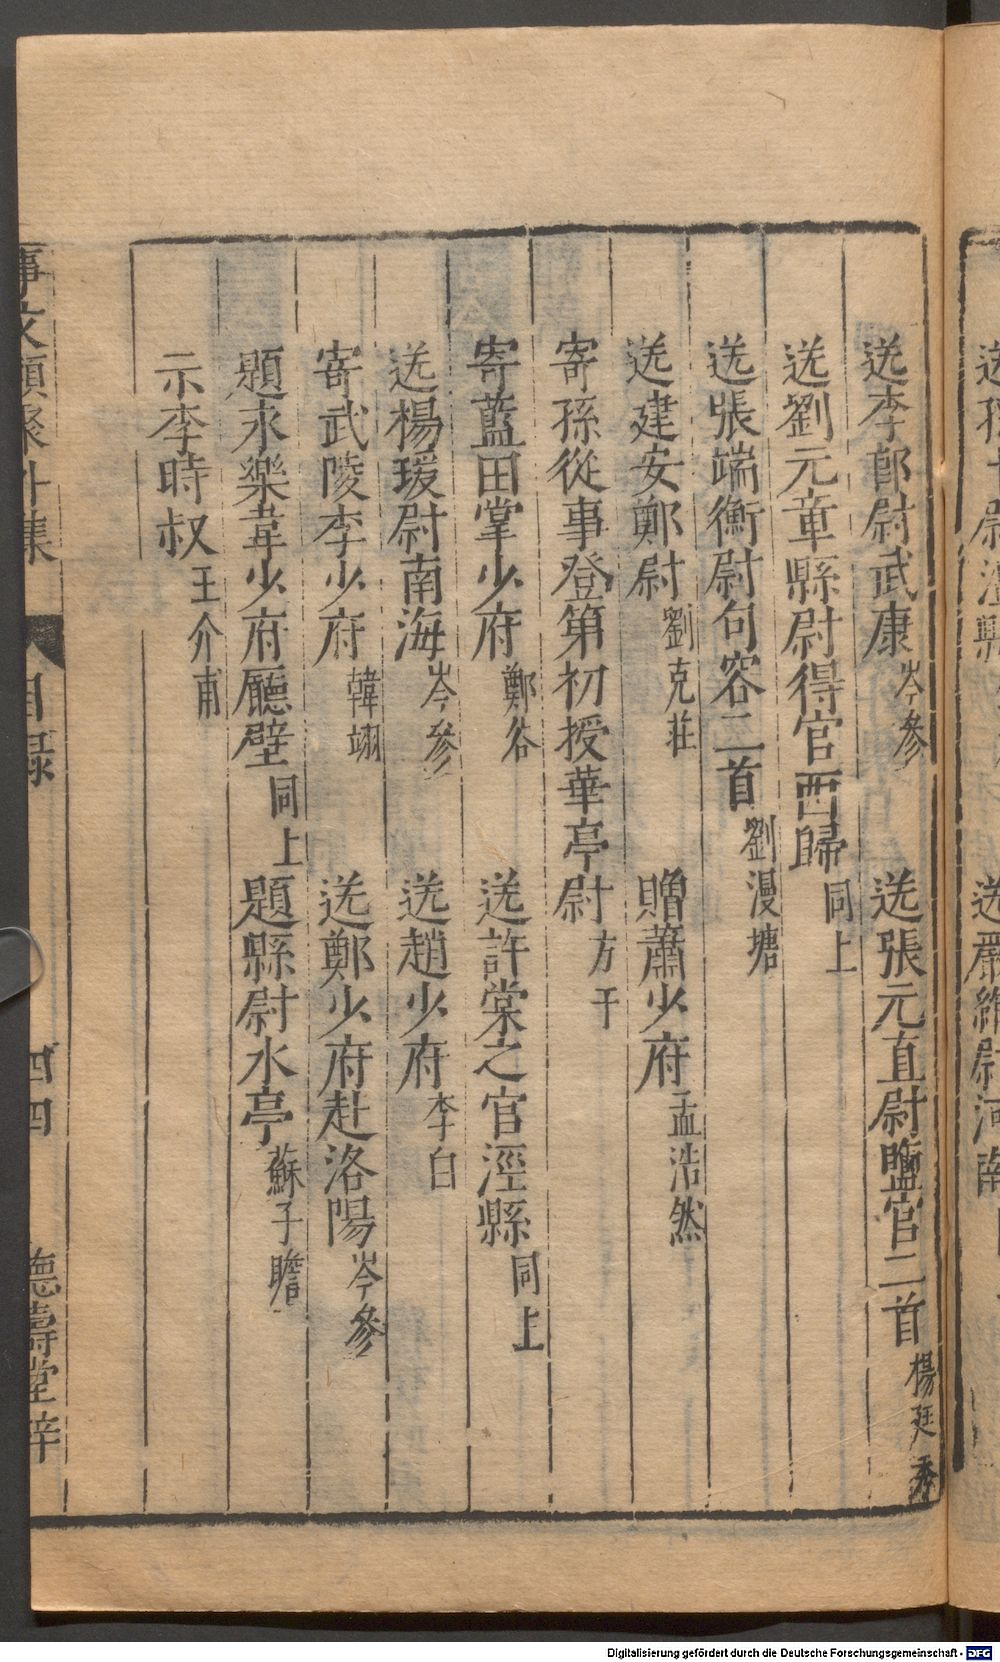 送李郎尉武康 岑參 送張元直尉鹽官二首 楊廷秀
送劉元章縣尉得官西歸 同上
送張端衡尉句容二首 劉漫塘
送建安鄭尉 劉克莊 贈蕭少府 孟浩然
寄孫從事登第初授華亭尉 方干
寄藍田掌少府 鄭谷 送許棠之官涇縣 同上
送楊瑗尉南海 岑參 送趙少府 李白
寄武陵李少府 韓翃 送鄭少府赴洛陽 岑參
題永樂韋少府廳壁 同上 題縣尉水亭 蘇子瞻
示李時叔 王介甫
事文類聚外集 目録 四四 德壽堂梓
Digitalisierung gefördert durch die Deutsche Forschungsgemeinschaft - DFG